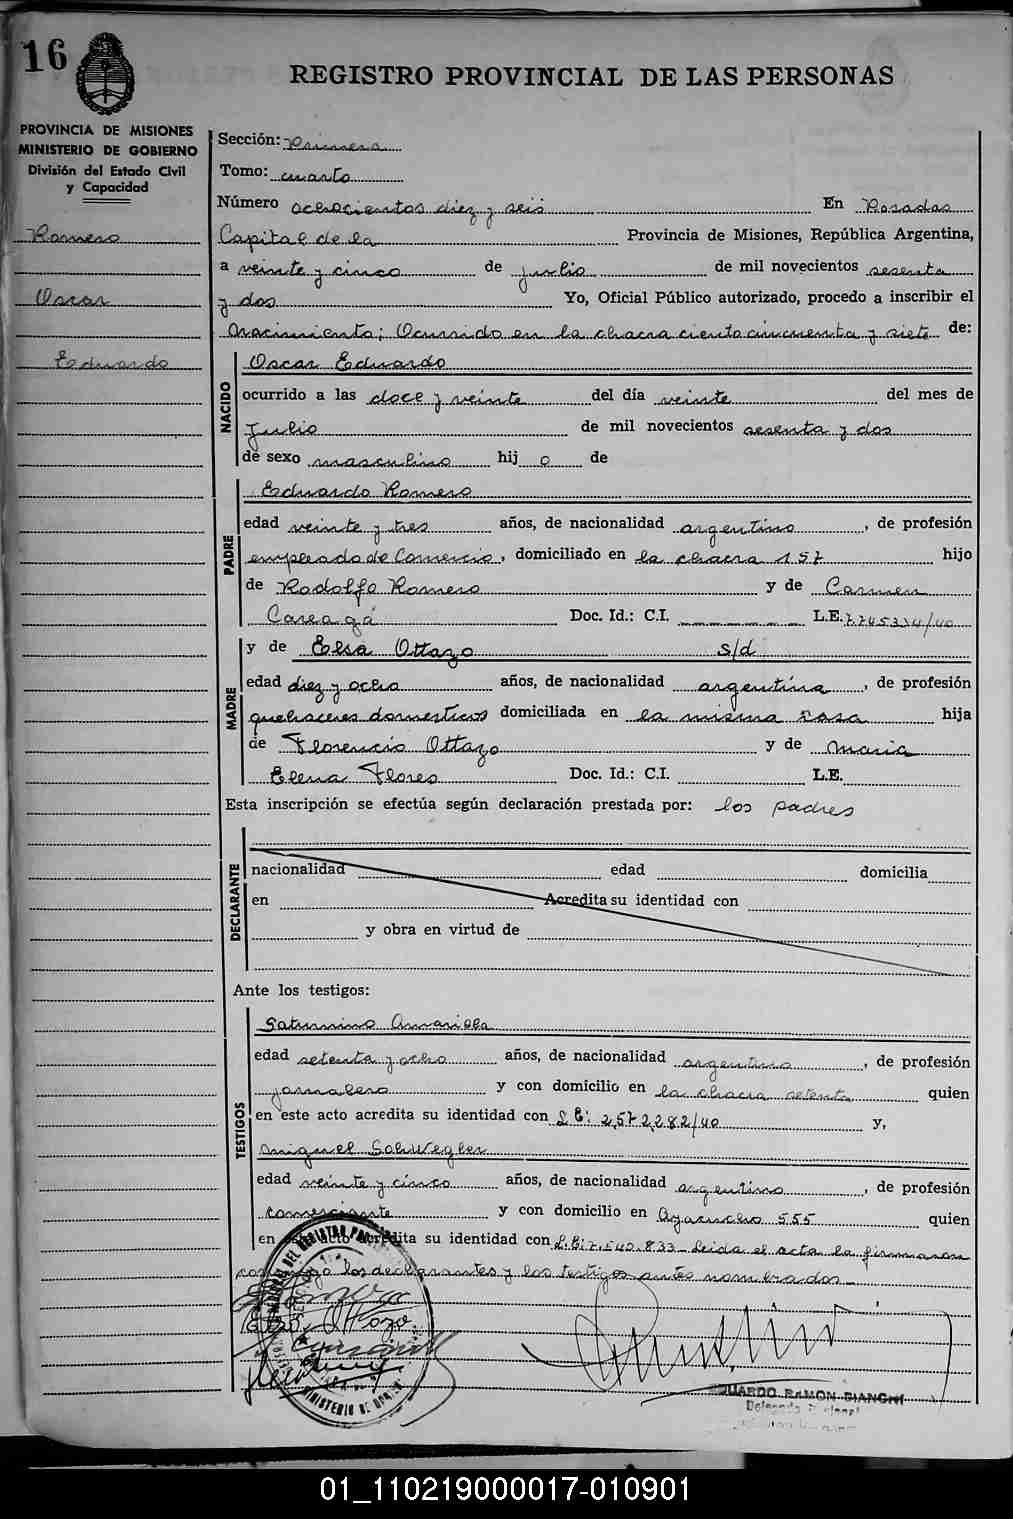 16
REGISTRO PROVINCIAL DE LAS PERSONAS
PROVINCIA DE MISIONES
MINISTERIO DE GOBIERNO
División del Estado Civil
y Capacidad
Romero
Oscar
Eduardo
Sección: Primera
Tomo: cuarto
Número ochocientos diez y seis En Posadas
Capital de la Provincia de Misiones, República Argentina,
a veinte y cinco de julio de mil novecientos sesenta
y dos Yo, Oficial Público autorizado, procedo a inscribir el
nacimiento; Ocurrido en la chacra ciento cincuenta y siete de:
NACIDO
Oscar Eduardo
ocurrido a las doce y veinte del día veinte del mes de
Julio de mil novecientos sesenta y dos
de sexo masculino hij o de
PADRE
Eduardo Romero
edad veinte y tres años, de nacionalidad argentino, de profesión
empleado de Comercio, domiciliado en la chacra 157 hijo
de Rodolfo Romero y de Carmen
Careaga Doc. Id.: C.I. L.E. 7.745.334/40
y de Elsa Ottazo s/d
MADRE
edad diez y ocho años, de nacionalidad argentina, de profesión
quehaceres domesticos domiciliada en la misma casa hija
de Florencio Ottazo y de Maria
Elena Flores Doc. Id.: C.I. L.E.
Esta inscripción se efectúa según declaración prestada por: los padres
DECLARANTE
nacionalidad edad domicilia
en Acredita su identidad con
y obra en virtud de
Ante los testigos:
TESTIGOS
Saturnino Amarilla
edad setenta y ocho años, de nacionalidad argentino, de profesión
jornalero y con domicilio en la chacra setenta quien
en este acto acredita su identidad con L.E: 2.572.282/40 y,
Miguel Schwegler
edad veinte y cinco años, de nacionalidad argentino, de profesión
comerciante y con domicilio en Ayacucho 555 quien
en este acto acredita su identidad con L.E: 7.540.833_ Leida el acta la firmaron
conmigo los declarantes y los testigos antes nombrados_
Elsa Ottazo
EDUARDO RAMON BIANCHI
01_110219000017-010901